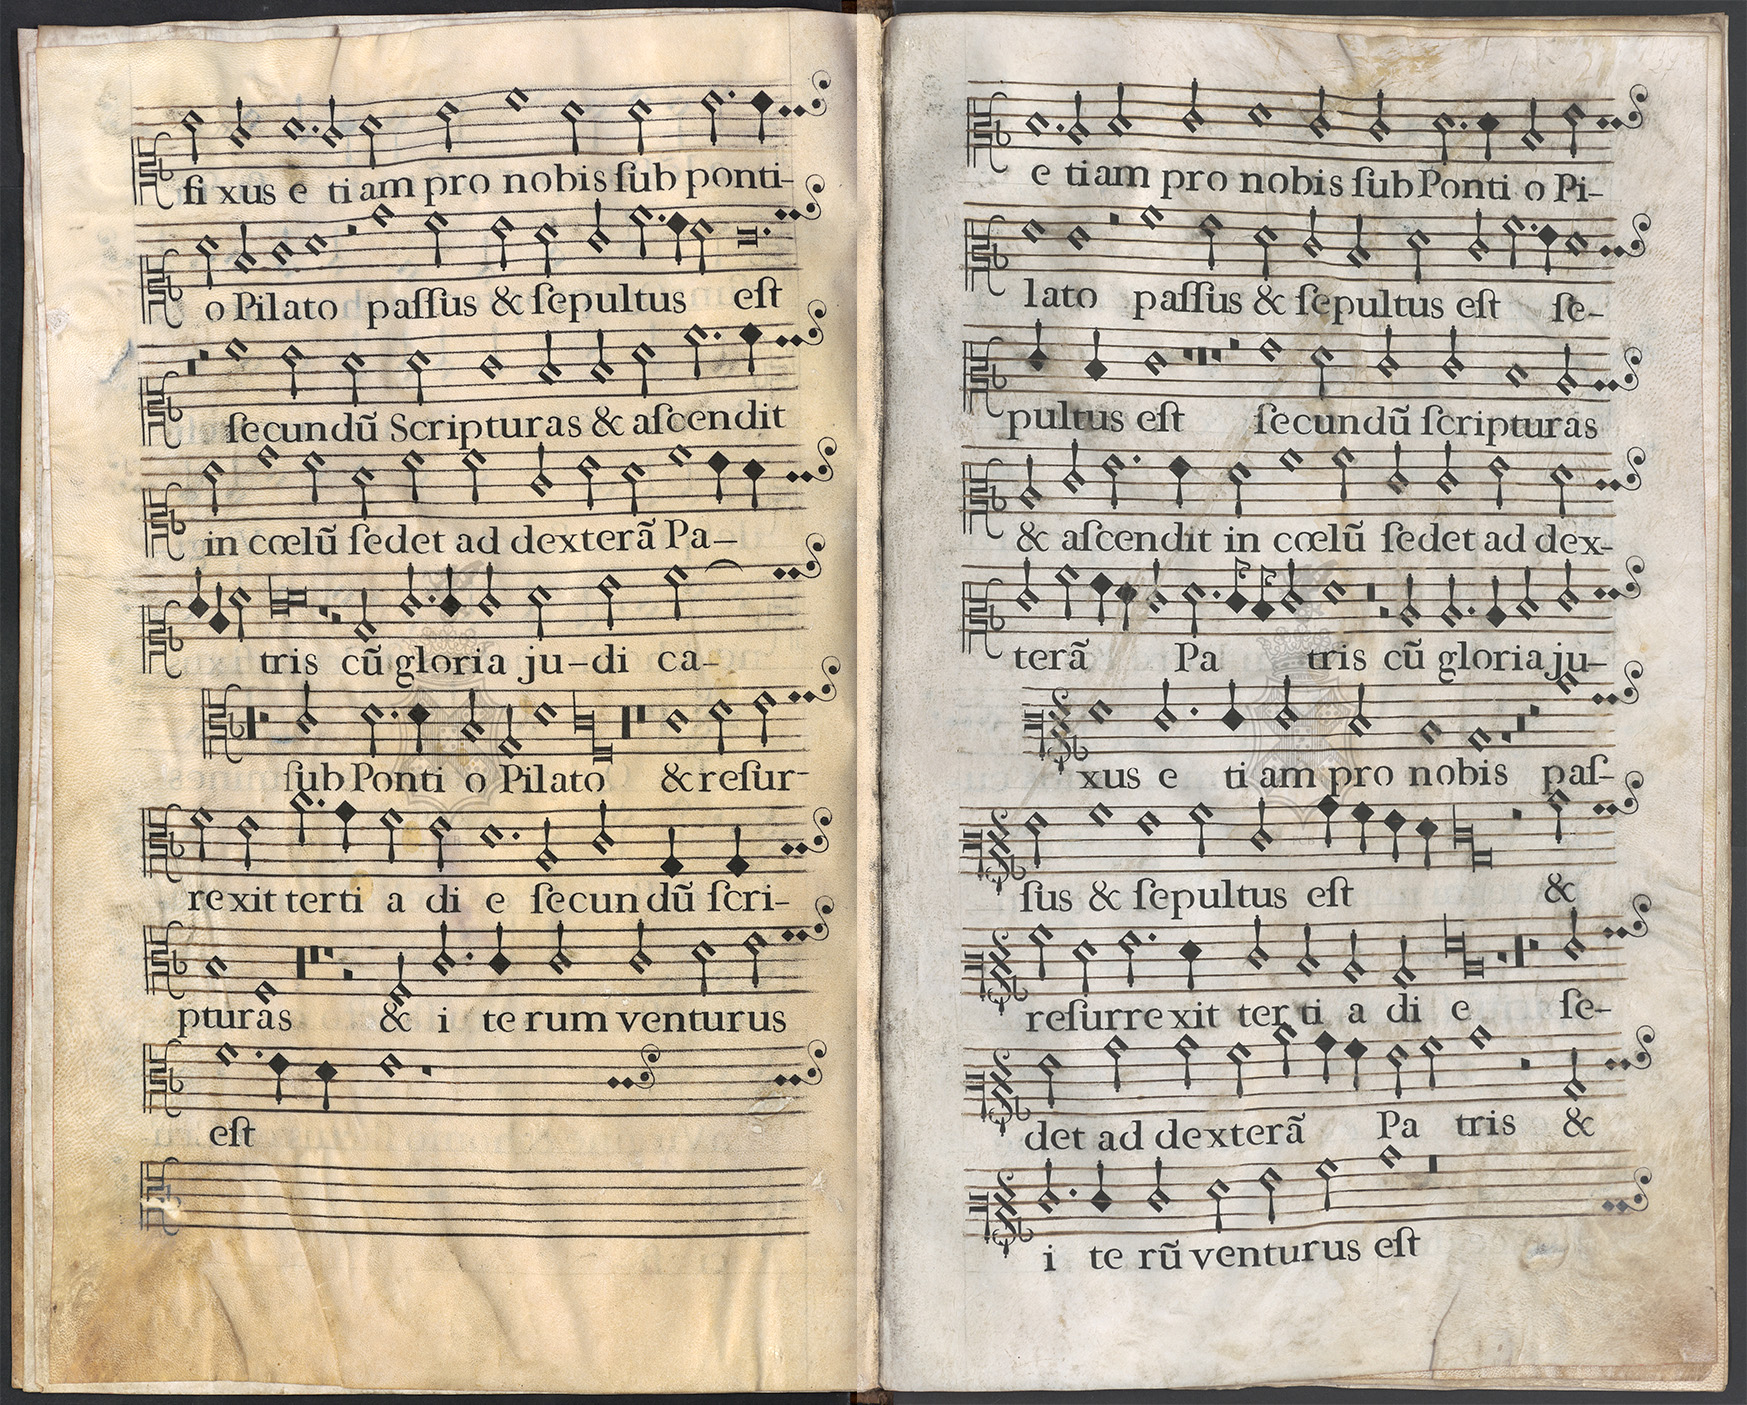 fi xus e ti am pro nobis ſub ponti-
o Pilato paſſus & ſepultus eſt
ſecundũ Scripturas & aſcendit
in cœlũ ſedet ad dexterã Pa-
tris cũ gloria ju-di ca-
ſub Ponti o Pilato & reſur-
rexit terti a di e ſecundũ ſcri-
pturas & i te rum venturus
eſt
e tiam pro nobis ſub Ponti o Pi-
lato paſſus & ſepultus eſt ſe-
pultus eſt ſecundũ ſcripturas
& aſcendit in cœlũ ſedet ad dex-
terã Pa tris cũ gloria ju-
xus e ti am pro nobis paſ-
ſus & ſepultus eſt &
reſurre xit ter ti a di e ſe-
det ad dexterã Pa tris &
i te rũ venturus eſt